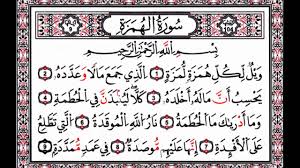 سُورَةُ الْهُمَزَةِ
بِسْمِ اللَّهِ الرَّحْمَٰنِ الرَّحِيمِ
وَيْلٌ لِكُلِّ هُمَزَةٍ لُمَزَةٍ ١ الَّذِي جَمَعَ مَالًا وَعَدَّدَهُ ٢
يَحْسَبُ أَنَّ مَالَهُ أَخْلَدَهُ ٣ كَلَّا لَيُنْبَذَنَّ فِي الْحُطَمَةِ ٤
وَمَا أَدْرَاكَ مَا الْحُطَمَةُ ٥ نَارُ اللَّهِ الْمُوقَدَةُ ٦ الَّتِي تَطَّلِعُ
عَلَى الْأَفْئِدَةِ ٧ إِنَّهَا عَلَيْهِمْ مُؤْصَدَةٌ ٨ فِي عَمَدٍ مُمَدَّدَةٍ ٩